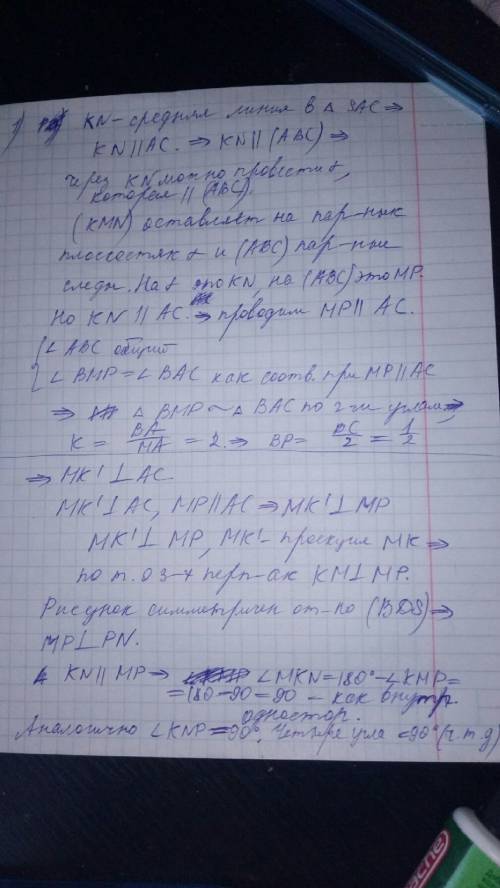 1) KN-средняя линия в △ SAC ⇒
KN∥AC. ⇒ KN∥(ABC) ⇒
через KN можно провести α,
которая ∥ (ABC).
(KMN) оставляет на пар-ных
плоскостях α и (ABC) пар-ные
следы. На α это KN, на (ABC) это MP.
Но KN ∥ AC. ⇒ проводим MP∥AC.
{ ∠ ABC общий
∠ BMP = ∠ BAC как соотв. при MP∥AC
⇒ △ BMP ~ △ BAC по 2-м углам ⇒
K = BA/MA = 2. ⇒ BP = BC/2 = 1/2
⇒ MK' ⊥ AC
MK' ⊥ AC, MP∥AC ⇒ MK' ⊥ MP
MK' ⊥ MP, MK' - проекция MK ⇒
по т. о 3-х перп-ах KM ⊥ MP.
Рисунок симметричен от-но (BDS) ⇒
MP ⊥ PN.
KN∥MP ⇒ ∠MKN = 180° - ∠KMP =
= 180 - 90 = 90 - как внутр.
одностор.
Аналогично ∠KNP = 90°. Четыре угла = 90° (ч.т.д)
acne